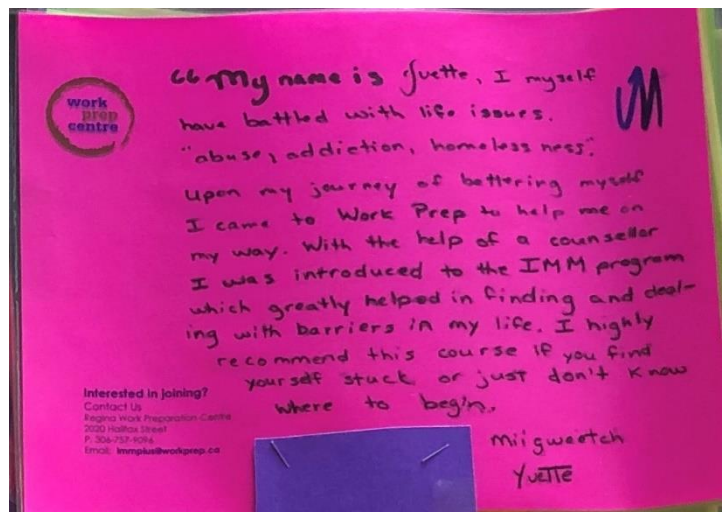 work
prep
centre
“My name is Yvette, I myself
have battled with life issues.
"abuse, addiction, homeless ness".
Upon my journey of bettering myself
I came to Work Prep to help me on
my way. With the help of a counsellor
I was introduced to the IMM program
which greatly helped in finding and deal-
ing with barriers in my life. I highly
recommend this course if you find
your self stuck or just don't know
where to begin.
Miigweetch
Yvette
Interested in joining?
Contact Us
Regina Work Preparation Centre
2020 Halifax Street
P. 306-757-9096
Email: immplus@workprep.ca